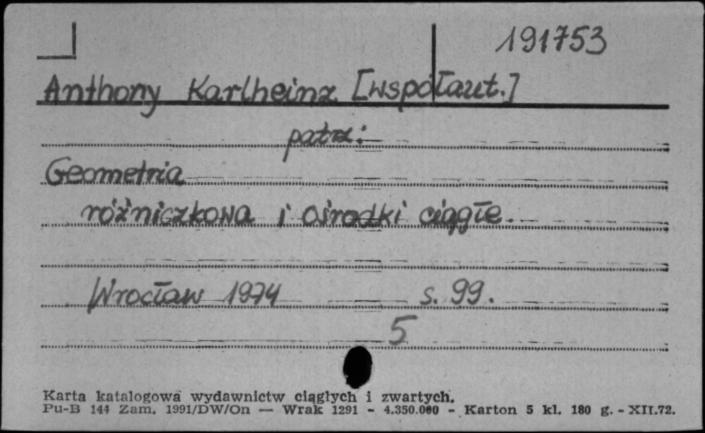 191753
Anthony Karlheinz [współaut.]
patrz:
Geometria
różniczkowa i ośrodki ciągłe.
Wrocław 1974 s. 99.
5
Karta katalogowa wydawnictw ciągłych i zwartych.
Pu-B 144 Zam. 1991/DW/On — Wrak 1291 - 4.350.000 - Karton 5 kl. 180 g. - XII.72.